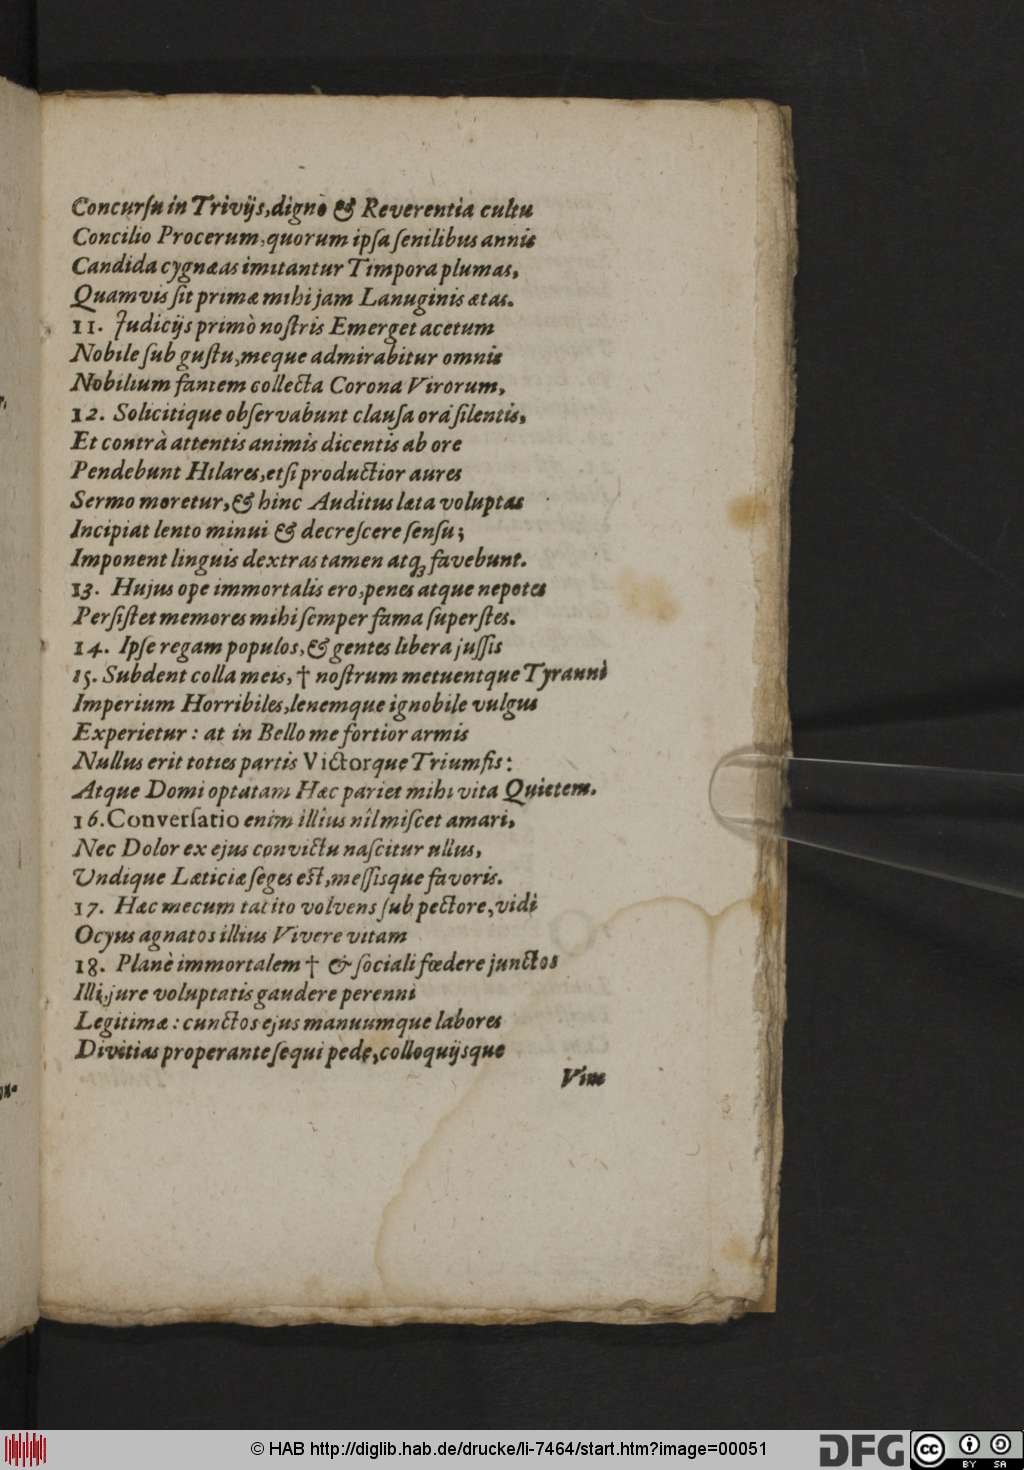 Concurſu in Trivijs, digno & Reverentia cultu
Concilio Procerum, quorum ipſa ſenilibus annis
Candida cygnæas imitantur Timpora plumas,
Quamvis ſit primæ mihi jam Lanuginis ætas.
11. Judicijs primò noſtris Emerget acetum
Nobile ſub guſtu, meque admirabitur omnis
Nobilium fantem collecta Corona Virorum,
12. Solicitique obſervabunt clauſa ora ſilentis,
Et contrà attentis animis dicentis ab ore
Pendebunt Hilares, etſi productior aures
Sermo moretur, & hinc Auditus læta voluptas
Incipiat lento minui & decreſcere ſenſu;
Imponent linguis dextras tamen atq; favebunt.
13. Hujus ope immortalis ero, penes atque nepotes
Perſiſtet memores mihi ſemper fama ſuperſtes.
14. Ipſe regam populos, & gentes libera juſſis
15. Subdent colla meis, † noſtrum metuentque Tyranni
Imperium Horribiles, lenemque ignobile vulgus
Experietur: at in Bello me fortior armis
Nullus erit toties partis Victorque Triumfis:
Atque Domi optatam Hæc pariet mihi vita Quietem.
16. Converſatio enim illius nîl miſcet amari,
Nec Dolor ex ejus convictu naſcitur ullus,
Undique Læticiæ ſeges eſt, meſſisque favoris.
17. Hæc mecum tacito volvens ſub pectore, vidi
Ocyus agnatos illius Vivere vitam
18. Planè immortalem † & ſociali fœdere junctos
Illi, jure voluptatis gaudere perenni
Legitimæ: cunctos ejus manuumque labores
Divitias properante ſequi pede, colloquijsque
Vim
© HAB http://diglib.hab.de/drucke/li-7464/start.htm?image=00051
DFG
cc BY SA